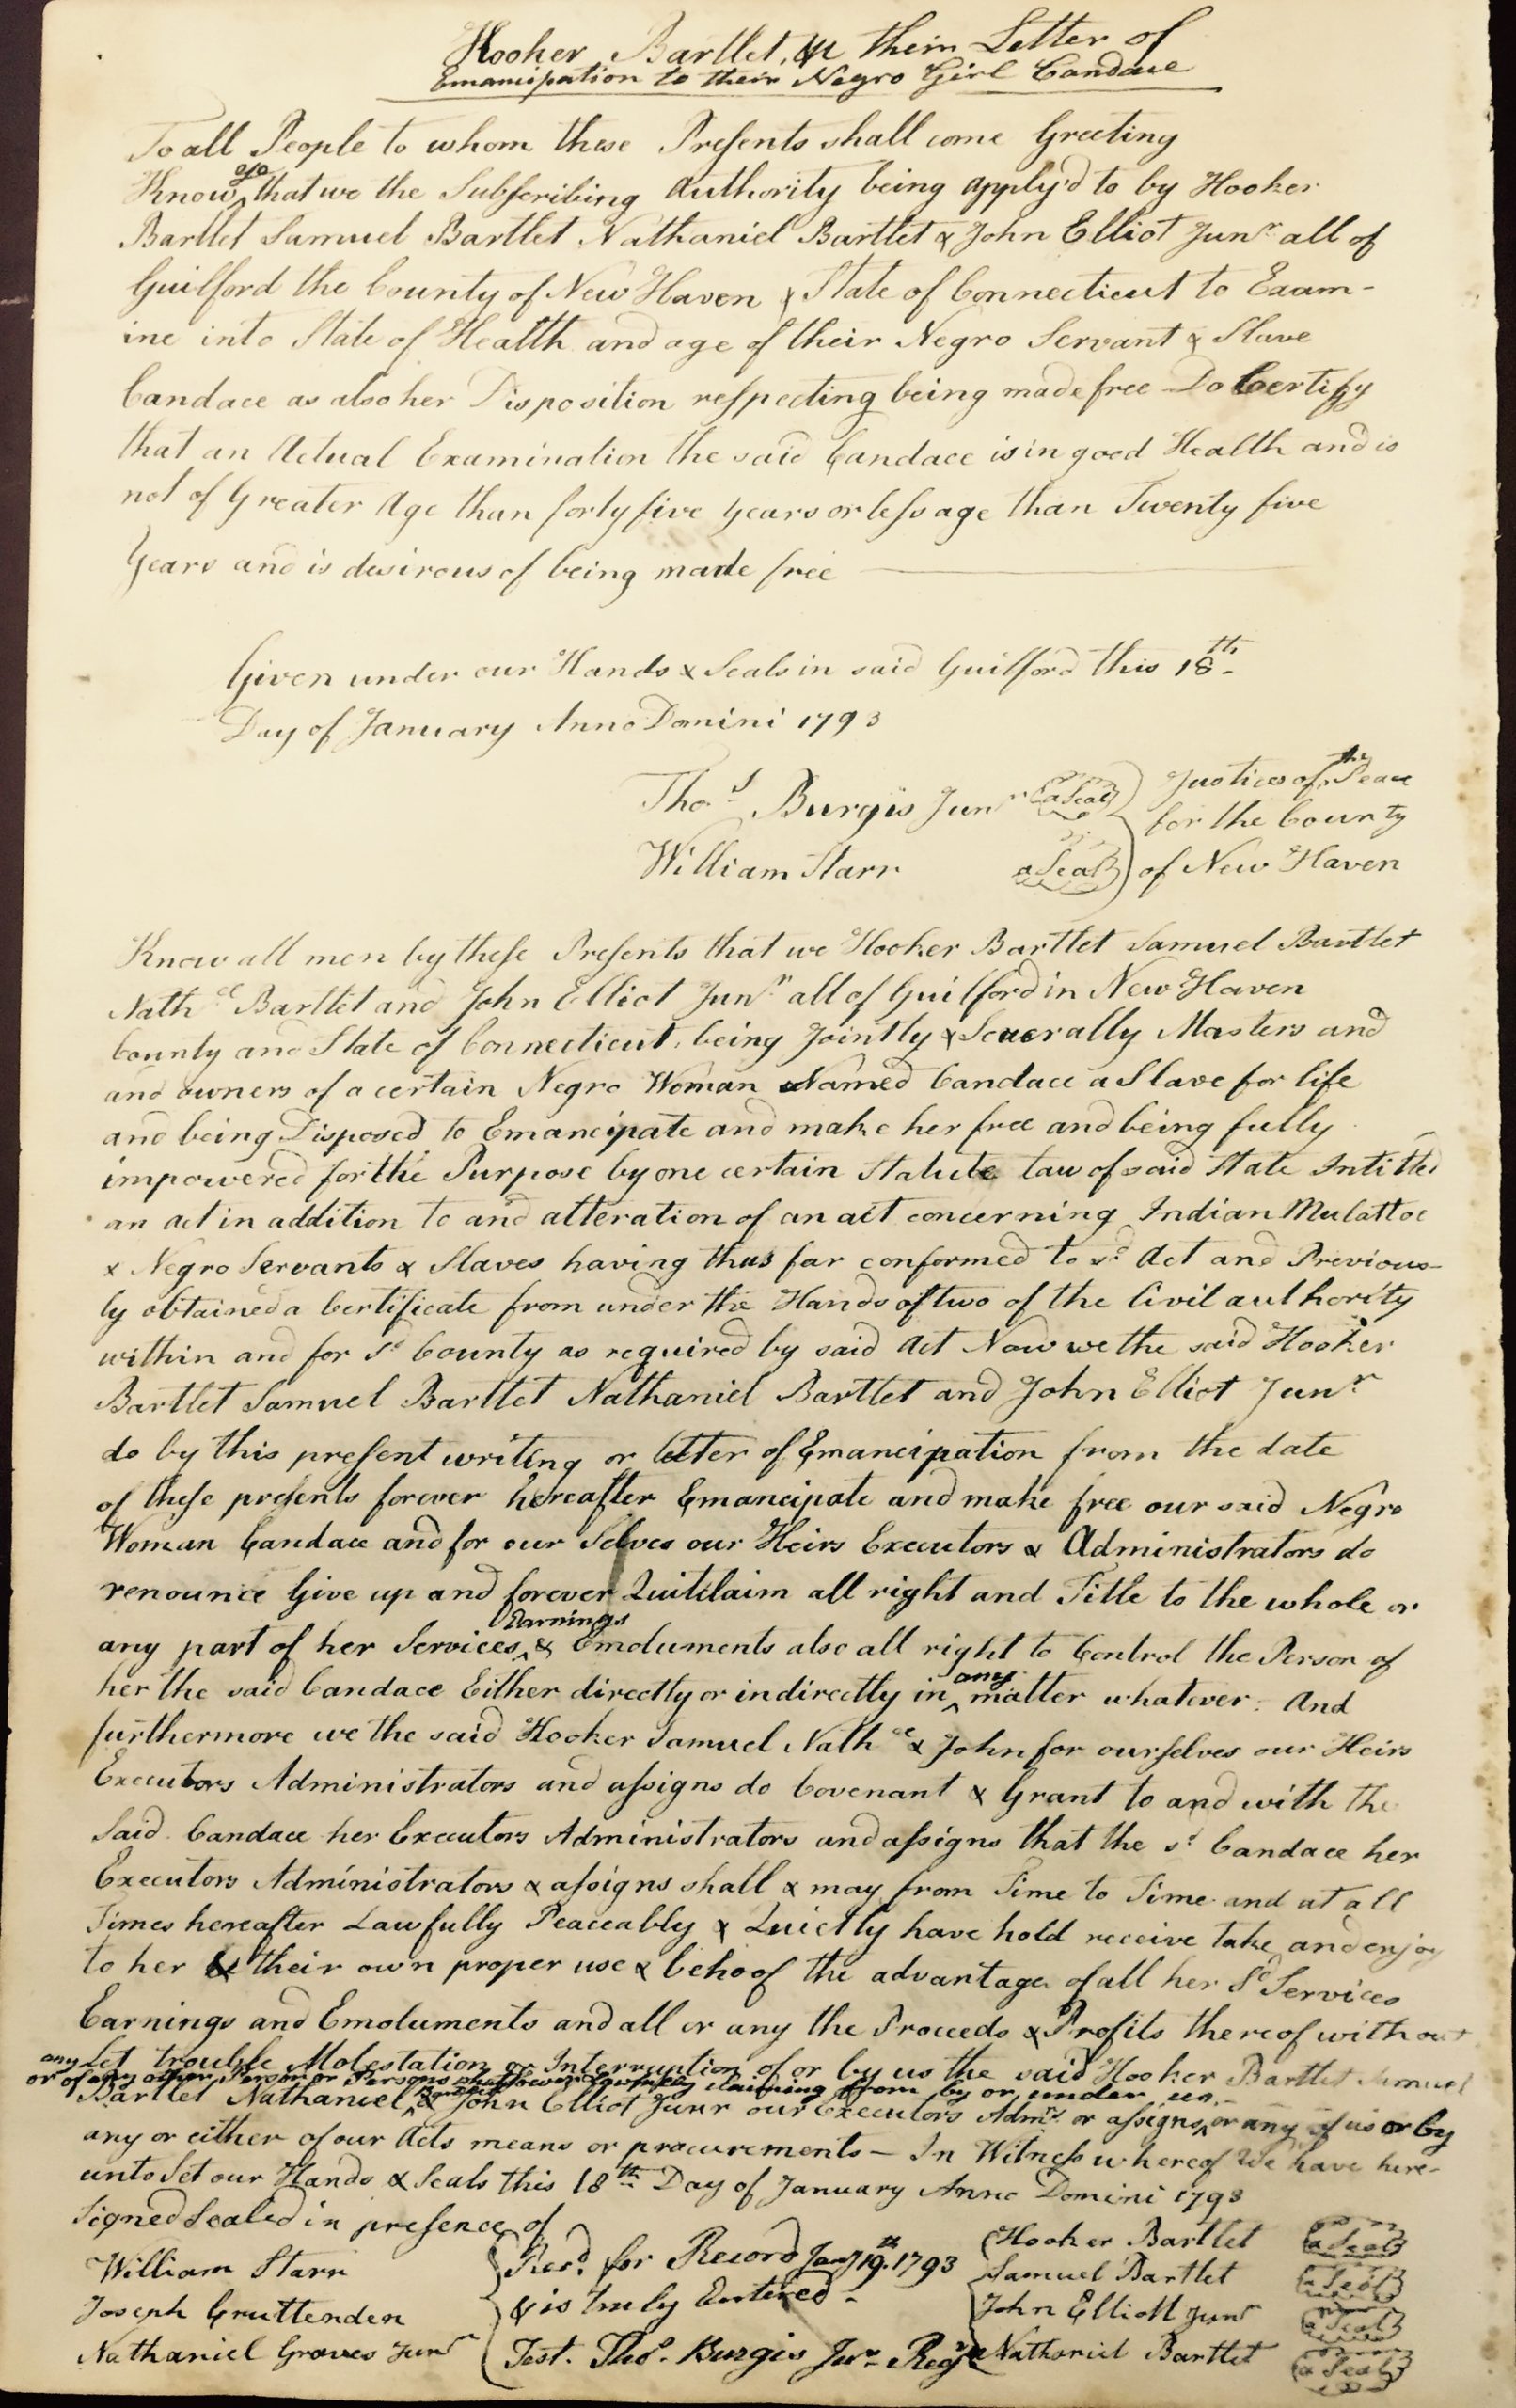 Hooker Bartlet, &c their Letter of
Emancipation to their Negro Girl Candace
To all People to whom these Presents shall come Greeting
Know ye that we the Subscribing Authority being apply'd to by Hooker
Bartlet Samuel Bartlet Nathaniel Bartlet & John Elliot Junr all of
Guilford the County of New Haven & State of Connecticut to Exam-
ine into State of Health and age of their Negro Servant & Slave
Candace as also her Disposition respecting being made free Do Certify
that an Actual Examination the said Candace is in good Health and is
not of Greater Age than forty five years or less age than Twenty five
Years and is desirous of being made free
Given under our Hands & Seals in said Guilford this 18th
Day of January Anno Domini 1793
Thos Burgis Junr a Seal Justices of the Peace
for the County
William Starr a Seal of New Haven
Know all men by these Presents that we Hooker Bartlet Samuel Bartlet
Nathel Bartlet and John Elliot Junr all of Guilford in New Haven
County and State of Connecticut, being Jointly & Severally Masters and
and owners of a certain Negro Woman Named Candace a Slave for life
and being Disposed to Emancipate and make her free and being fully
impowered for the Purpose by one certain Statute Law of said State Intitled
an act in addition to and alteration of an act concerning Indian Mulattoe
& Negro Servants & Slaves having thus far conformed to sd Act and Previous-
ly obtained a Certificate from under the Hands of two of the Civil authority
within and for sd County as required by said Act Now we the said Hooker
Bartlet Samuel Bartlet Nathaniel Bartlet and John Elliot Junr
do by this present writing or letter of Emancipation from the date
of these presents forever hereafter Emancipate and make free our said Negro
Woman Candace and for our Selves our Heirs Executors & Administrators do
renounce Give up and forever Quitclaim all right and Title to the whole or
any part of her Services, Earnings & Emoluments also all right to Control the Person of
her the said Candace Either directly or indirectly in any matter whatever. And
furthermore we the said Hooker Samuel Nathel & John for ourselves our Heirs
Executors Administrators and assigns do Covenant & Grant to and with the
Said Candace her Executors Administrators and assigns that the sd Candace her
Executors Administrators & assigns shall & may from Time to Time and at all
Times hereafter Lawfully Peaceably & Quietly have hold receive take and enjoy
to her & their own proper use & behoof the advantage of all her Sd Services
Earnings and Emoluments and all or any the Proceeds & Profits thereof without
any Let trouble Molestation or Interruption of or by us the said Hooker Bartlet Samuel
or of any other Person or Persons whatsoever Lawfully claiming from by or under us
Bartlet Nathaniel Bartlet & John Elliot Junr our Executors Admrs or assigns, or any of us or by
any or either of our Acts means or procurements — In Witness whereof We have here-
unto Set our Hands & Seals this 18th Day of January Anno Domini 1793
Signed Sealed in presence of
William Starr
Joseph Cruttenden
Nathaniel Graves Junr
Recd for Record Jany 19th 1793
& is truly Entered
Test. Thos Burgis Junr Regr
Hooker Bartlet a Seal
Samuel Bartlet a Seal
John Elliott Junr a Seal
Nathaniel Bartlet a Seal